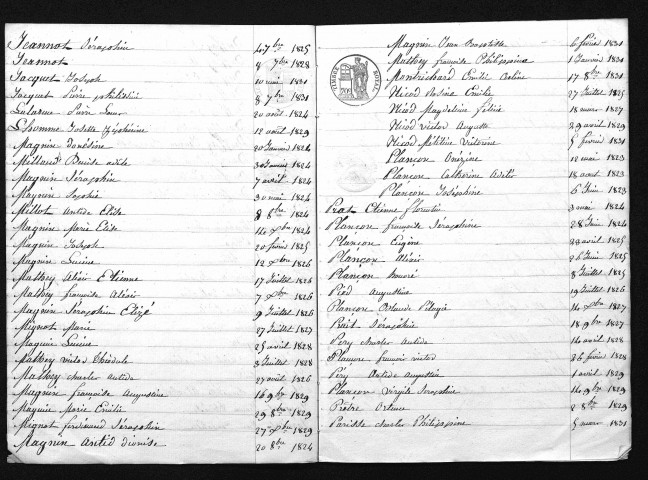 Jeannot Séraphin 4 7bre 1825
Jeannot 8 7bre 1828
Jacquet Joseph 10 mai 1831
Jacquet Pierre 8 7bre 1831
20 août 1824
Lhomme Josette Zéphirine 12 avril 1829
Magnin Onésime 20 Janvier 1824
30 Janvier 1824
Magnin Séraphin 7 avril 1824
Magnin Sophie 30 mai 1824
Millot Antide Elise 8 8bre 1824
Magnin Marie Elise 14 Xbre 1824
Magnin Joseph 20 février 1825
Magnin Lucine 12 Xbre 1826
Mathey Alixir Etienne 17 Juillet 1826
Mathey françoise Alixir 7 Xbre 1826
Magnin Séraphin Elizé 9 Juillet 1826
Mignot Marie 27 Juillet 1827
Magnin Lucine 25 avril 1828
Mathey victor Théodule 3 Juillet 1828
Mathey charles antide 27 avril 1826
Magnin françoise Augustine 16 9bre 1829
Magnin Marie Emélie 29 8bre 1829
Mignot ferdinand Séraphin 27 Xbre 1829
Magnin Antid dionise 20 8bre 1824
TIMBRE ROYAL
Magnin Jean Baptiste 6 février 1831
Mathey françoise Philippine 1 Janvier 1831
Montrichard Emélie 17 8bre 1831
Nicod Rosine Emélie 27 Juillet 1825
Nicod Magdeleine 18 mars 1827
Nicod victor Auguste 29 avril 1829
Nicod Mélitine Victorine 5 février 1831
Plançon Onézime 12 mai 1823
Plançon Catherine 18 août 1823
Plançon Joséphine 6 Juin 1823
Prat Etienne florentin 3 mai 1824
Plançon françoise Séraphine 28 Juin 1824
Plançon Eugène 22 avril 1825
Plançon Alixir 26 Juin 1825
Plançon honoré 8 Juillet 1825
Augustine 19 Juillet 1826
Plançon Pélagie 14 Xbre 1827
Séraphin 18 9bre 1827
Péry charles antide 14 avril 1828
Plançon francois victor 26 février 1828
Péry Antide Augustin 1 avril 1829
Plançon Virgile Séraphin 14 9bre 1829
2 8bre 1829
Parisse charles Philippine 5 mars 1831